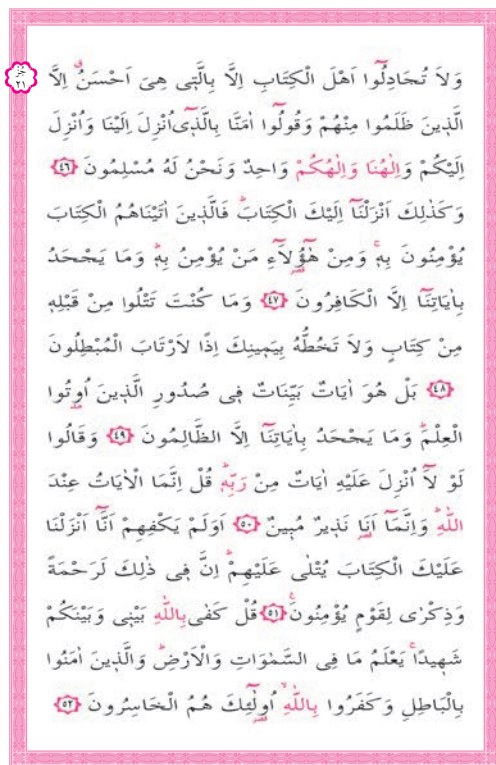 جُزْ
٢١
وَلَا تُجَادِلُٓوا اَهْلَ الْكِتَابِ اِلَّا بِالَّت۪ي هِيَ اَحْسَنُۗ اِلَّا
الَّذ۪ينَ ظَلَمُوا مِنْهُمْ وَقُولُٓوا اٰمَنَّا بِالَّذ۪ٓي اُنْزِلَ اِلَيْنَا وَاُنْزِلَ
اِلَيْكُمْ وَاِلٰهُنَا وَاِلٰهُكُمْ وَاحِدٌ وَنَحْنُ لَهُ مُسْلِمُونَ ﴿٤٦﴾
وَكَذٰلِكَ اَنْزَلْنَٓا اِلَيْكَ الْكِتَابَۜ فَالَّذ۪ينَ اٰتَيْنَاهُمُ الْكِتَابَ
يُؤْمِنُونَ بِه۪ۚ وَمِنْ هٰٓؤُ۬لَٓاءِ مَنْ يُؤْمِنُ بِه۪ۜ وَمَا يَجْحَدُ
بِاٰيَاتِنَٓا اِلَّا الْكَافِرُونَ ﴿٤٧﴾ وَمَا كُنْتَ تَتْلُوا مِنْ قَبْلِه۪
مِنْ كِتَابٍ وَلَا تَخُطُّهُ بِيَم۪ينِكَ اِذًا لَارْتَابَ الْمُبْطِلُونَ
﴿٤٨﴾ بَلْ هُوَ اٰيَاتٌ بَيِّنَاتٌ ف۪ي صُدُورِ الَّذ۪ينَ اُو۫تُوا
الْعِلْمَۜ وَمَا يَجْحَدُ بِاٰيَاتِنَٓا اِلَّا الظَّالِمُونَ ﴿٤٩﴾ وَقَالُوا
لَوْ لَٓا اُنْزِلَ عَلَيْهِ اٰيَاتٌ مِنْ رَبِّه۪ۜ قُلْ اِنَّمَا الْاٰيَاتُ عِنْدَ
اللّٰهِۜ وَاِنَّمَٓا اَنَا۬ نَذ۪يرٌ مُب۪ينٌ ﴿٥٠﴾ اَوَلَمْ يَكْفِهِمْ اَنَّٓا اَنْزَلْنَا
عَلَيْكَ الْكِتَابَ يُتْلٰى عَلَيْهِمْۜ اِنَّ ف۪ي ذٰلِكَ لَرَحْمَةً
وَذِكْرٰى لِقَوْمٍ يُؤْمِنُونَ۟ ﴿٥١﴾ قُلْ كَفٰى بِاللّٰهِ بَيْن۪ي وَبَيْنَكُمْ
شَه۪يدًاۚ يَعْلَمُ مَا فِي السَّمٰوَاتِ وَالْاَرْضِۜ وَالَّذ۪ينَ اٰمَنُوا
بِالْبَاطِلِ وَكَفَرُوا بِاللّٰهِۙ اُو۬لٰٓئِكَ هُمُ الْخَاسِرُونَ ﴿٥٢﴾